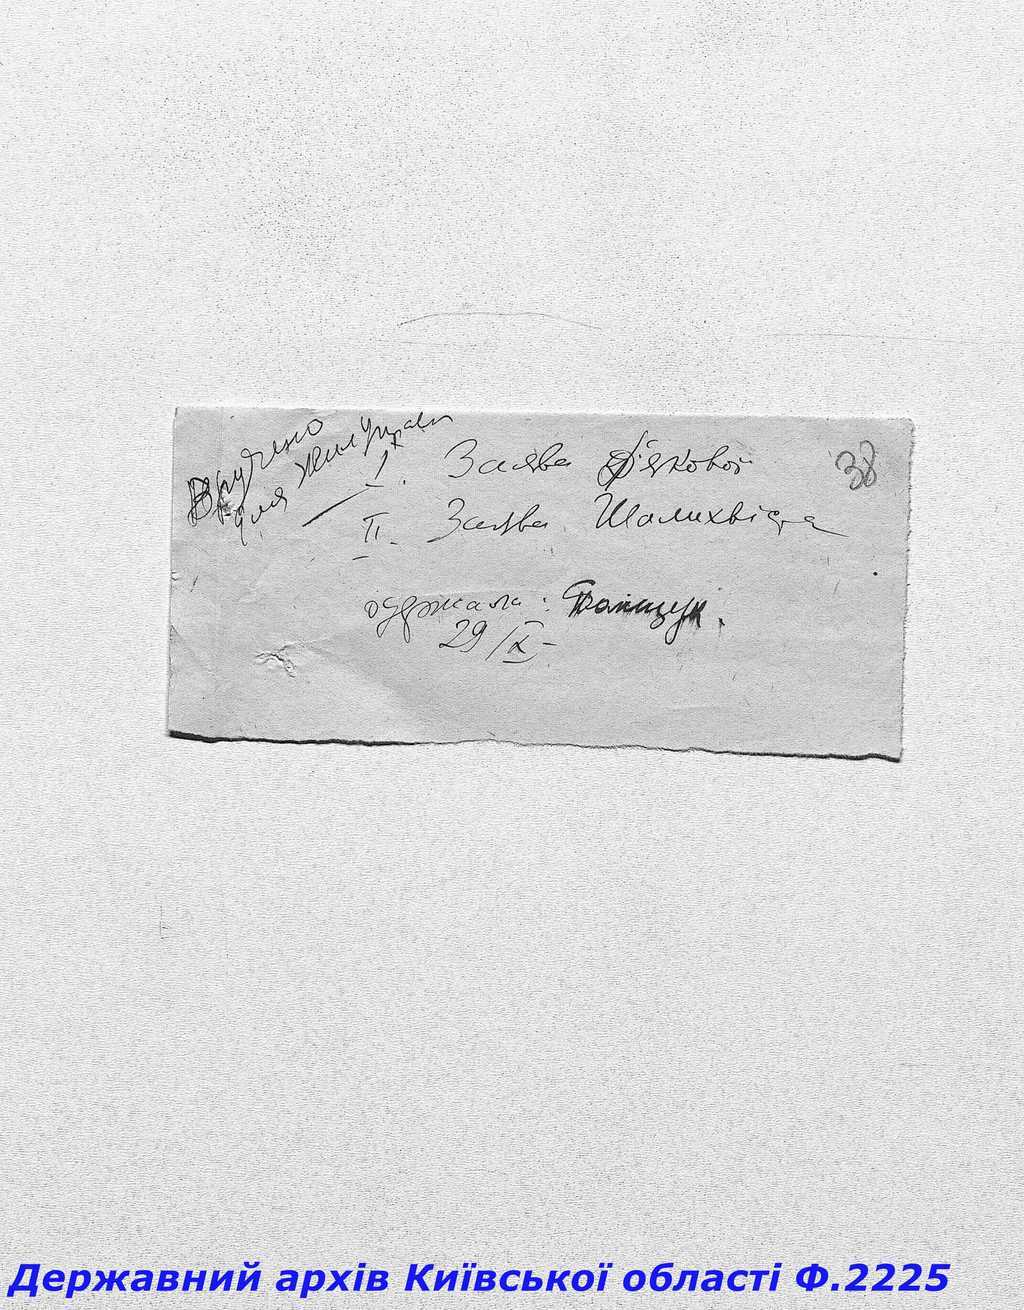 Вручено
для Жил Управи
I. Заява Дякової
38
II. Заява Шолихвіста
одержала:
29/X-
Державний архів Київської області Ф.2225